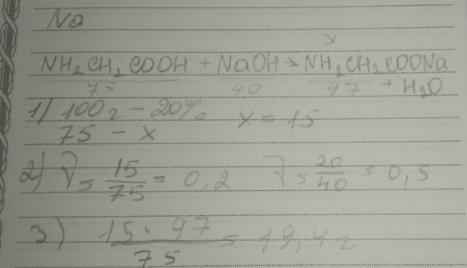 No
y
NH₂CH₂COOH + NaOH → NH₂CH₂COONa
75 40 97 + H₂O
1) 100г – 20%
75 – x x = 15
2) ν = 15/75 = 0,2 ν = 20/40 = 0,5
3) 15 · 97 / 75 = 19,4г